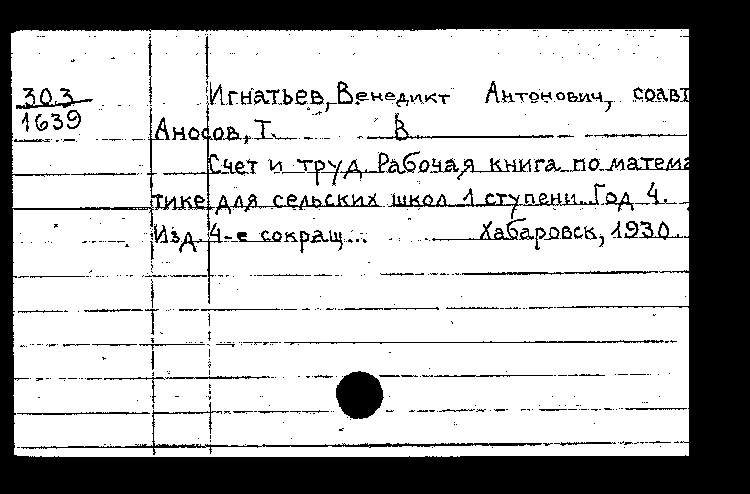 303
1639
Игнатьев, Венедикт Антонович, соавт
Аносов, Т. В.
Счет и труд. Рабочая книга по матема
тике для сельских школ 1 ступени. Год 4.
Изд. 4-е сокращ... Хабаровск, 1930.